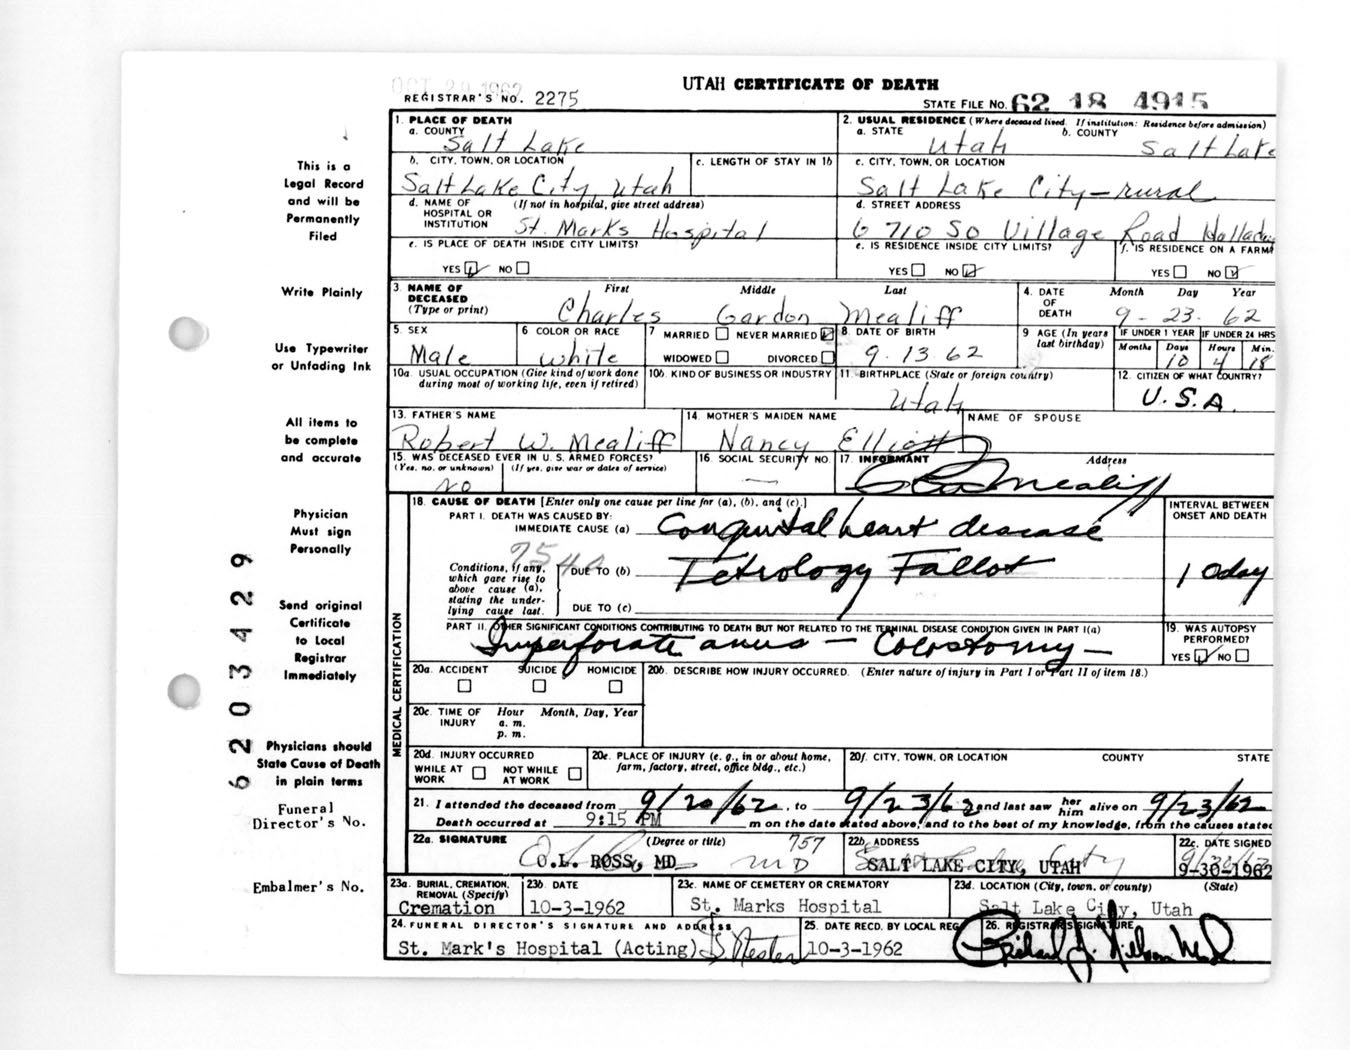 OCT 29 1962
UTAH CERTIFICATE OF DEATH
REGISTRAR'S NO. 2275
STATE FILE NO. 62 18 4915
This is a
Legal Record
and will be
Permanently
Filed
Write Plainly
Use Typewriter
or Unfading Ink
All items to
be complete
and accurate
Physician
Must sign
Personally
Send original
Certificate
to Local
Registrar
Immediately
Physicians should
State Cause of Death
in plain terms
Funeral
Director's No.
Embalmer's No.
6203429
1. PLACE OF DEATH
a. COUNTY
Salt Lake
2. USUAL RESIDENCE (Where deceased lived. If institution: Residence before admission)
a. STATE b. COUNTY
Utah Salt Lake
b. CITY, TOWN, OR LOCATION
Salt Lake City, Utah
c. LENGTH OF STAY IN 1b
c. CITY, TOWN, OR LOCATION
Salt Lake City-rural
d. NAME OF HOSPITAL OR INSTITUTION (If not in hospital, give street address)
St. Marks Hospital
d. STREET ADDRESS
6710 So Village Road
e. IS PLACE OF DEATH INSIDE CITY LIMITS?
YES NO
e. IS RESIDENCE INSIDE CITY LIMITS?
YES NO
f. IS RESIDENCE ON A FARM
YES NO
3. NAME OF DECEASED (Type or print)
First Middle Last
Charles Gordon Mealiff
4. DATE OF DEATH Month Day Year
9-23-62
5. SEX
Male
6 COLOR OR RACE
White
7 MARRIED NEVER MARRIED
WIDOWED DIVORCED
8. DATE OF BIRTH
9.13.62
9 AGE (In years last birthday)
IF UNDER 1 YEAR IF UNDER 24 HRS
Months Days Hours Min.
10 4 18
10a. USUAL OCCUPATION (Give kind of work done during most of working life, even if retired)
10b. KIND OF BUSINESS OR INDUSTRY
11. BIRTHPLACE (State or foreign country)
Utah
12. CITIZEN OF WHAT COUNTRY?
U.S.A.
13. FATHER'S NAME
Robert W. Mealiff
14 MOTHER'S MAIDEN NAME
Nancy Elliott
NAME OF SPOUSE
15. WAS DECEASED EVER IN U.S. ARMED FORCES?
(Yes, no, or unknown) (If yes, give war or dates of service)
No
16. SOCIAL SECURITY NO.
—
17. INFORMANT Address
Mealiff
MEDICAL CERTIFICATION
18. CAUSE OF DEATH [Enter only one cause per line for (a), (b), and (c).]
PART I. DEATH WAS CAUSED BY:
IMMEDIATE CAUSE (a) Congenital heart disease
INTERVAL BETWEEN ONSET AND DEATH
Conditions, if any, which gave rise to above cause (a), stating the underlying cause last.
DUE TO (b) Tetrology Fallot
DUE TO (c)
PART II. OTHER SIGNIFICANT CONDITIONS CONTRIBUTING TO DEATH BUT NOT RELATED TO THE TERMINAL DISEASE CONDITION GIVEN IN PART I(a)
Imperforate anus — Colostomy —
19. WAS AUTOPSY PERFORMED?
YES NO
20a. ACCIDENT SUICIDE HOMICIDE
20b. DESCRIBE HOW INJURY OCCURRED. (Enter nature of injury in Part I or Part II of item 18.)
20c. TIME OF INJURY Hour Month, Day, Year
a. m.
p. m.
20d. INJURY OCCURRED
WHILE AT WORK NOT WHILE AT WORK
20e. PLACE OF INJURY (e. g., in or about home, farm, factory, street, office bldg., etc.)
20f. CITY, TOWN, OR LOCATION COUNTY STATE
21. I attended the deceased from 9/20/62, to 9/23/62 and last saw her him alive on 9/23/62
Death occurred at 9:15 PM m on the date stated above, and to the best of my knowledge, from the causes stated
22a. SIGNATURE (Degree or title) 757
O.L. ROSS, MD MD
22b. ADDRESS
SALT LAKE CITY, UTAH
22c. DATE SIGNED
9-30-1962
23a. BURIAL, CREMATION, REMOVAL (Specify)
Cremation
23b. DATE
10-3-1962
23c. NAME OF CEMETERY OR CREMATORY
St. Marks Hospital
23d. LOCATION (City, town, or county) (State)
Salt Lake City, Utah
24. FUNERAL DIRECTOR'S SIGNATURE AND ADDRESS
St. Mark's Hospital (Acting)
25. DATE RECD. BY LOCAL REG
10-3-1962
26. REGISTRAR'S SIGNATURE